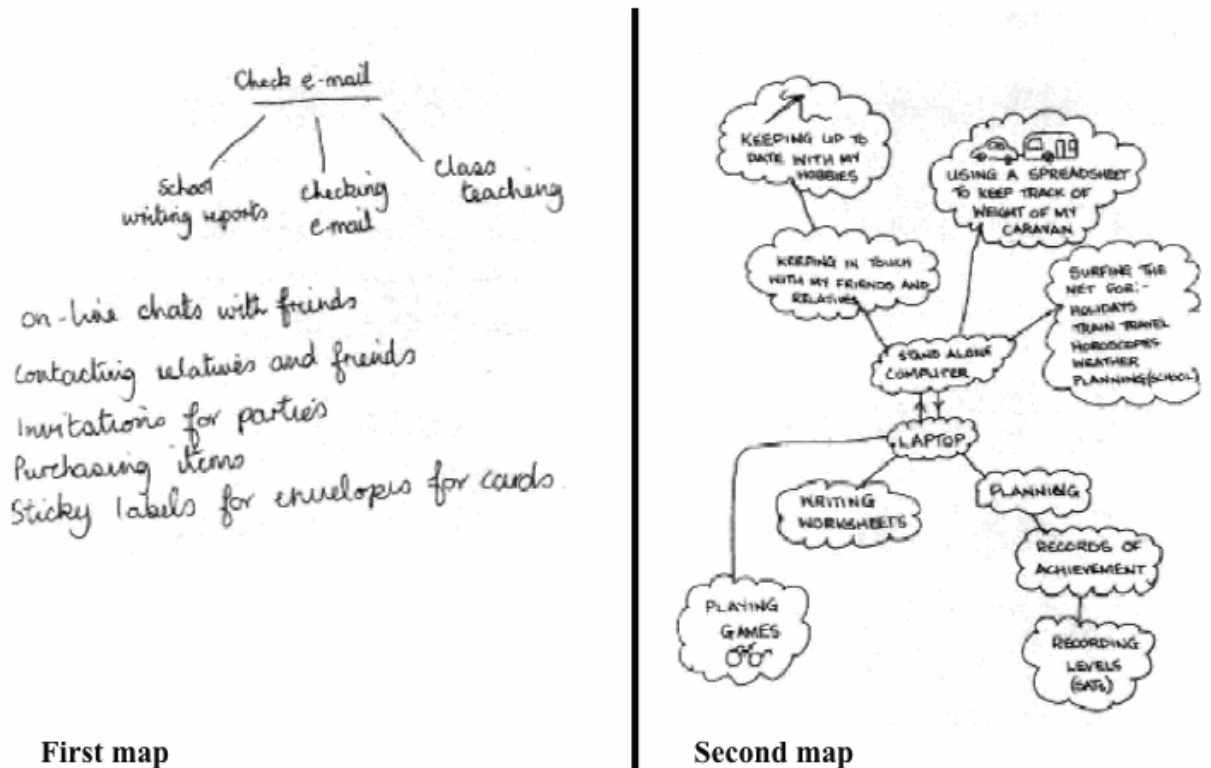 Check e-mail
School
writing reports
checking
e-mail
class
teaching
on-line chats with friends
Contacting relatives and friends
Invitations for parties
Purchasing items
Sticky labels for envelopes for cards
First map
KEEPING UP TO
DATE WITH MY
HOBBIES
USING A SPREADSHEET
TO KEEP TRACK OF
WEIGHT OF MY
CARAVAN
KEEPING IN TOUCH
WITH MY FRIENDS AND
RELATIVES
SURFING THE
NET FOR:-
HOLIDAYS
TRAIN TRAVEL
HOROSCOPES
WEATHER
PLANNING (SCHOOL)
STAND ALONE
COMPUTER
LAPTOP
WRITING
WORKSHEETS
PLANNING
RECORDS OF
ACHIEVEMENT
PLAYING
GAMES
RECORDING
LEVELS
(SATs)
Second map